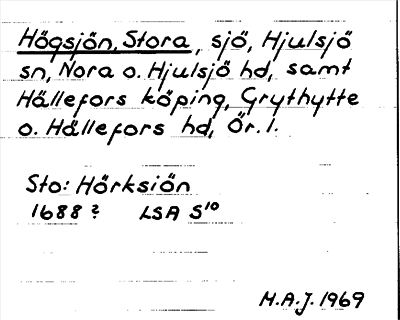 Högsjön, Stora, sjö, Hjulsjö
sn, Nora o. Hjulsjö hd, samt
Hällefors köping, Grythytte
o. Hällefors hd, Ör. l.
Sto: Hörksiön
1688? LSA S10
H.A.J. 1969